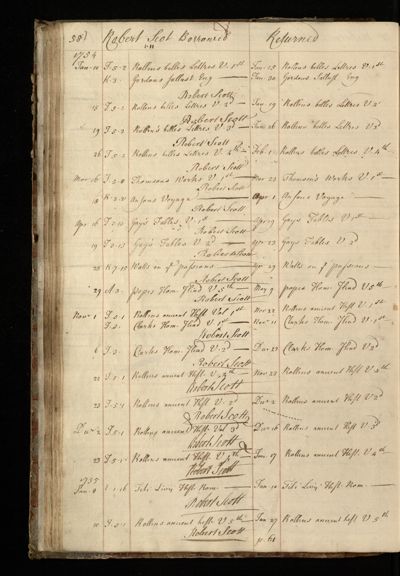 Robert Scot Borrowed Returned
1754
Jan 11 F.5-2 Rollins belles Lettres V. 1st Jan 15 Rollins belles Lettres V. 1st
K.3- Gordons Sallust Eng Jan 30 Gordons Sallust Eng
Robert Scott
15 F.5-2 Rollins belles Lettres V 2d Jan 19 Rollins belles Lettres V 2d
Robert Scott
19 F.5-2 Rollins belles Lettres V 3d Jan 26 Rollins belles Lettres V 3d
Robert Scott
26 F.5-2 Rollins belles Lettres V 4th Feb 1 Rollins belles Lettres V 4th
Robert Scott
Thomsons Works V 1st 23 Thomson's Works V 1st
Robert Scott
18 Ansons Voyage Apr 1 Ansons Voyage
Robert Scott
Apr 16 Gays Fables V 1st Apr 19 Gays Fables V 1st
Robert Scott
19 Gays Fables V 2d Apr 23 Gays Fables V 2d
Robert Scott
Watts on ye passions 29 Watts on ye passions
Robert Scott
29 popes Hom. Iliad V 5th May 9 popes Hom. Iliad V 5th
Robert Scott
Nov 1 F.5.1 Rollins ancient Hist Vol 1st Nov 22 Rollins ancient Hist V. 1st
F.3. Clarks Hom. Iliad V 1st Nov 11 Clarks Hom. Iliad V. 1st
Robert Scott
F.3. Clarks Hom. Iliad V 2d 23 Clarks Hom. Iliad V 2d
Robert Scott
22 F.5.1 Rollins ancient Hist. V. 4th Nov 23 Rollins ancient Hist V. 4th
Robert Scott
23 F.5.1 Rollins ancient Hist V. 2d Dec 2 Rollins ancient Hist V 2d
Robert Scott
Dec 2 F.5.1 Rollins ancient Hist. Vol 3d Dec 16 Rollins ancient Hist V 3d
Robert Scott
23 F.5.1 Rollins ancient Hist. V 4th Jan 9 Rollins ancient Hist. V 4th
Robert Scott
1755
Jan 9 Titi Livii Hist. Rom Jan 10 Titi Livii Hist. Rom
Robert Scott
10 F.5.1 Rollins ancient hist. V 5th Jan 27 Rollins ancient hist. V 5th
Robert Scott
p. 61